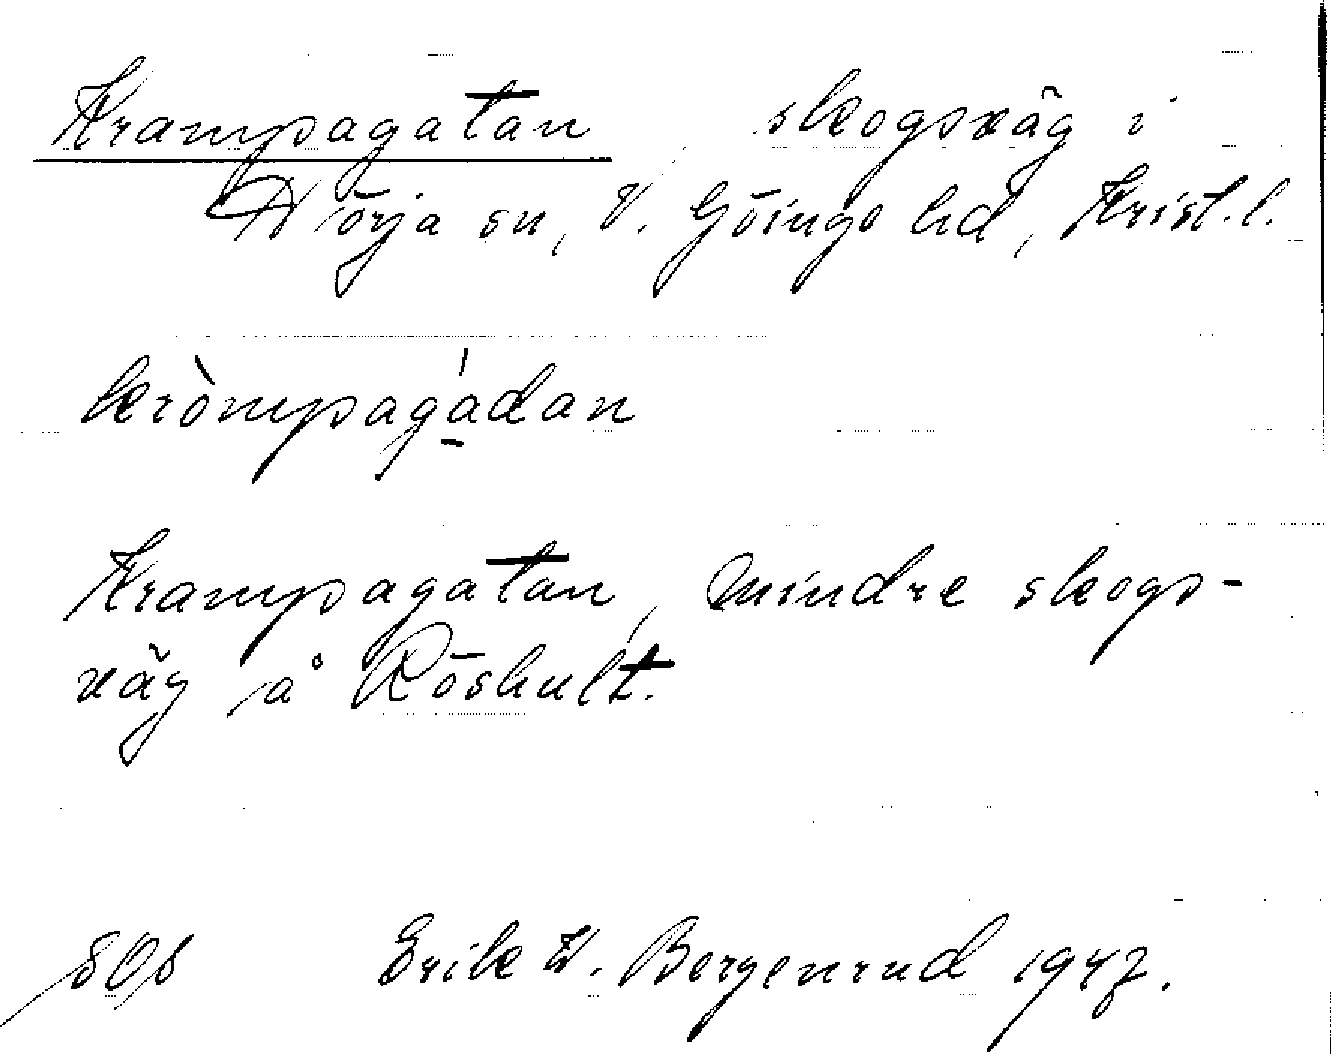 Krampagatan, skogsväg i
Nörja sn, V. Göinge hd, Krist. l.
kròmpagádan
Krampagatan, mindre skogs-
väg å Röshult.
Erik W. Bergenrud 1947.